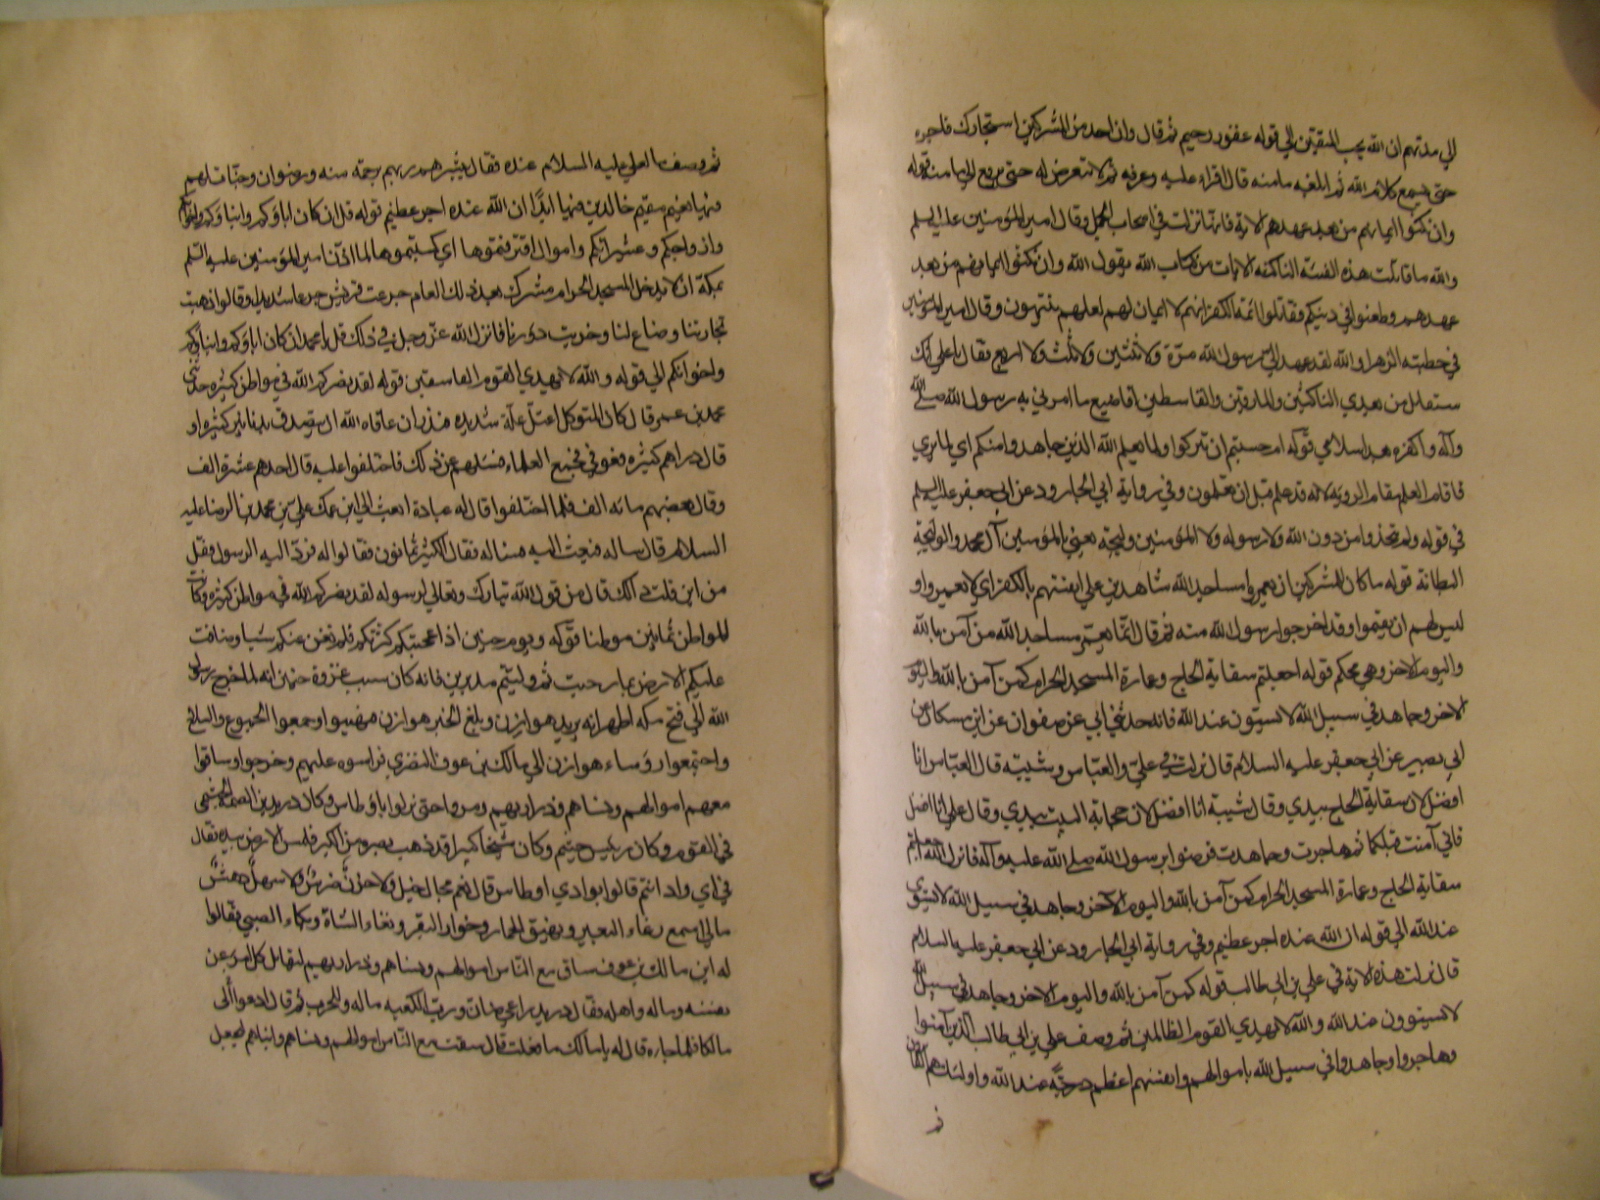 الي مدتهم ان الله يحب المتقين الي قوله غفور رحيم ثم قال وان احد من المشركين استجارك فاجره
حتى يسمع كلام الله ثم ابلغه مامنه قال اقراء عليه وعرفه ثم لا تتعرض له حتى يرجع الي مامنه قوله
وان نكثوا ايمانهم من بعد عهدهم الاية فانها نزلت في اصحاب الجمل وقال امير المؤمنين عليه السلم
والله ما قاتلت هذه الفئة الناكثة الا باية من كتاب الله يقول الله وان نكثوا ايمانهم من بعد
عهدهم وطعنوا في دينكم فقاتلوا ائمة الكفر انهم لا ايمان لهم لعلهم ينتهون وقال امير المؤمنين
في خطبته الزهرا والله لقد عهد الي رسول الله مرة ولا ثنتين ولا ثلث ولا اربع فقال يا علي انك
ستقاتل من بعدي الناكثين والمارقين والقاسطين افاضيع ما امرني به رسول الله صلى الله
وآله واكفر بعد اسلامي قوله ام حسبتم ان تتركوا ولما يعلم الله الذين جاهدوا منكم اي لما يري
فاقام العلم مقام الروية لانه قد علم قبل ان يعلمون وفي رواية ابي الجارود عن ابي جعفر عليه السلم
في قوله ولم يتخذوا من دون الله ولا رسوله ولا المؤمنين وليجة يعني بالمؤمنين آل محمد والوليجة
البطانة قوله ما كان للمشركين ان يعمروا مساجد الله شاهدين علي انفسهم بالكفر اي لا يعمروا و
ليس لهم ان يقيموا وقد اخرجوا رسول الله منه ثم قال انما يعمر مساجد الله من آمن بالله
واليوم الاخر وهي محكم قوله اجعلتم سقاية الحاج وعمارة المسجد الحرام كمن آمن بالله واليوم
الاخر وجاهد في سبيل الله لا يستون عند الله فانه حدثني ابي عن صفوان عن ابن مسكان عن
ابي بصير عن ابي جعفر عليه السلام قال نزلت في علي والعباس وشيبة قال العباس انا
افضل لان سقاية الحاج بيدي وقال شيبة انا افضل لان حجابة البيت بيدي وقال علي انا افضل
فاني آمنت قبلكما ثم هاجرت وجاهدت فرضوا برسول الله صلي الله عليه وآله فانزل الله اجعلتم
سقاية الحاج وعمارة المسجد الحرام كمن آمن بالله واليوم الآخر وجاهد في سبيل الله لا يستوي
عند الله الي قوله ان الله عنده اجر عظيم وفي رواية ابي الجارود عن ابي جعفر عليه السلام
قال نزلت هذه الاية في علي بن ابي طالب قوله كمن آمن بالله واليوم الاخر وجاهد في سبيل الله
لا يستوون عند الله والله لا يهدي القوم الظالمين ثم وصف علي بن ابي طالب الذين آمنوا
وهاجروا وجاهدوا في سبيل الله باموالهم وانفسهم اعظم درجة عند الله واولئك هم الفائزون
ثم
ثم وصف ما لعلي عليه السلام عنده فقال يبشرهم ربهم برحمة منه ورضوان وجنات لهم
فيها نعيم مقيم خالدين فيها ابدا ان الله عنده اجر عظيم قوله قل ان كان اباؤكم وابناؤكم واخوانكم
وازواجكم وعشيرتكم واموال اقترفتموها اي كسبتموها لما اذن امير المؤمنين عليه السلم
بمكة ان لا يدخل المسجد الحرام مشرك بعد ذلك العام جزعت قريش جزعا شديدا وقالوا ذهبت
تجارتنا وضاع لنا وخربت دورنا فانزل الله عز وجل في ذلك قل يا محمد ان كان اباؤكم وابناؤكم
واخوانكم الي قوله والله لا يهدي القوم الفاسقين قوله لقد نصركم الله في مواطن كثيرة حدثني
محمد بن عمر قال كان المتوكل اعتل علة شديدة فنذر ان عافاه الله ان يتصدق بدنانير كثيرة او
قال دراهم كثيرة فعوفي فجمع العلماء فسئلهم عن ذلك فاختلفوا عليه قال احدهم عشرة الف
وقال بعضهم مائة الف فلما اختلفوا قال له عبادة ابعث الي ابن عمك علي بن محمد بن الرضا عليه
السلام قال ساله فبعث اليه فساله فقال الكثير ثمانون فقالوا له فرد اليه الرسول وقل
من اين قلت ذلك قال من قول الله تبارك وتعالي لرسوله لقد نصركم الله في مواطن كثيرة وكانت
المواطن ثمانين موطنا قوله ويوم حنين اذ اعجبتكم كثرتكم فلم تغن عنكم شيا وضاقت
عليكم الارض بما رحبت ثم وليتم مدبرين فانه كان سبب غزوة حنين انه لما خرج رسول
الله الي فتح مكة اظهر انه يريد هوازن وبلغ الخبر هوازن فتهيوا وجمعوا الجموع والسلاح
واجتمعوا رؤساء هوازن الي مالك بن عوف النضري فراسوه عليهم وخرجوا وساقوا
معهم اموالهم ونساهم وذراريهم ومروا حتى نزلوا باوطاس وكان دريد بن الصمة الجشمي
في القوم وكان رئيس جشم وكان شيخا كبيرا قد ذهب بصره من الكبر فلمس الارض بيده فقال
في اي واد انتم قالوا بوادي اوطاس قال نعم مجال خيل ولا حزن ضرس ولا سهل دهس
مالي اسمع رغاء البعير ونهيق الحمار وخوار البقر وثغاء الشاة وبكاء الصبي فقالوا
له ابن مالك بن عوف ساق مع الناس اموالهم ونساهم وذراريهم ليقاتل كل امرء عن
نفسه وماله واهله فقال دريد راعي ضان ورب الكعبة ماله وللحرب ثم قال ادعوا لي
مالكا فلما جاءه قال له يا مالك ما فعلت قال سقت مع الناس اموالهم ونساهم وابناهم ليجعل